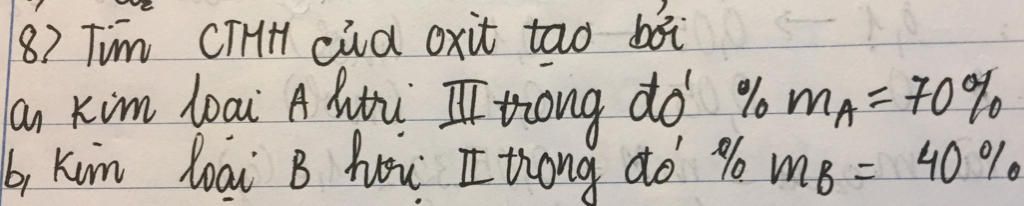 8) Tìm CTHH của oxit tạo bởi
a, Kim loại A htrị III trong đó % mA = 70%
b, Kim loại B htrị II trong đó % mB = 40%